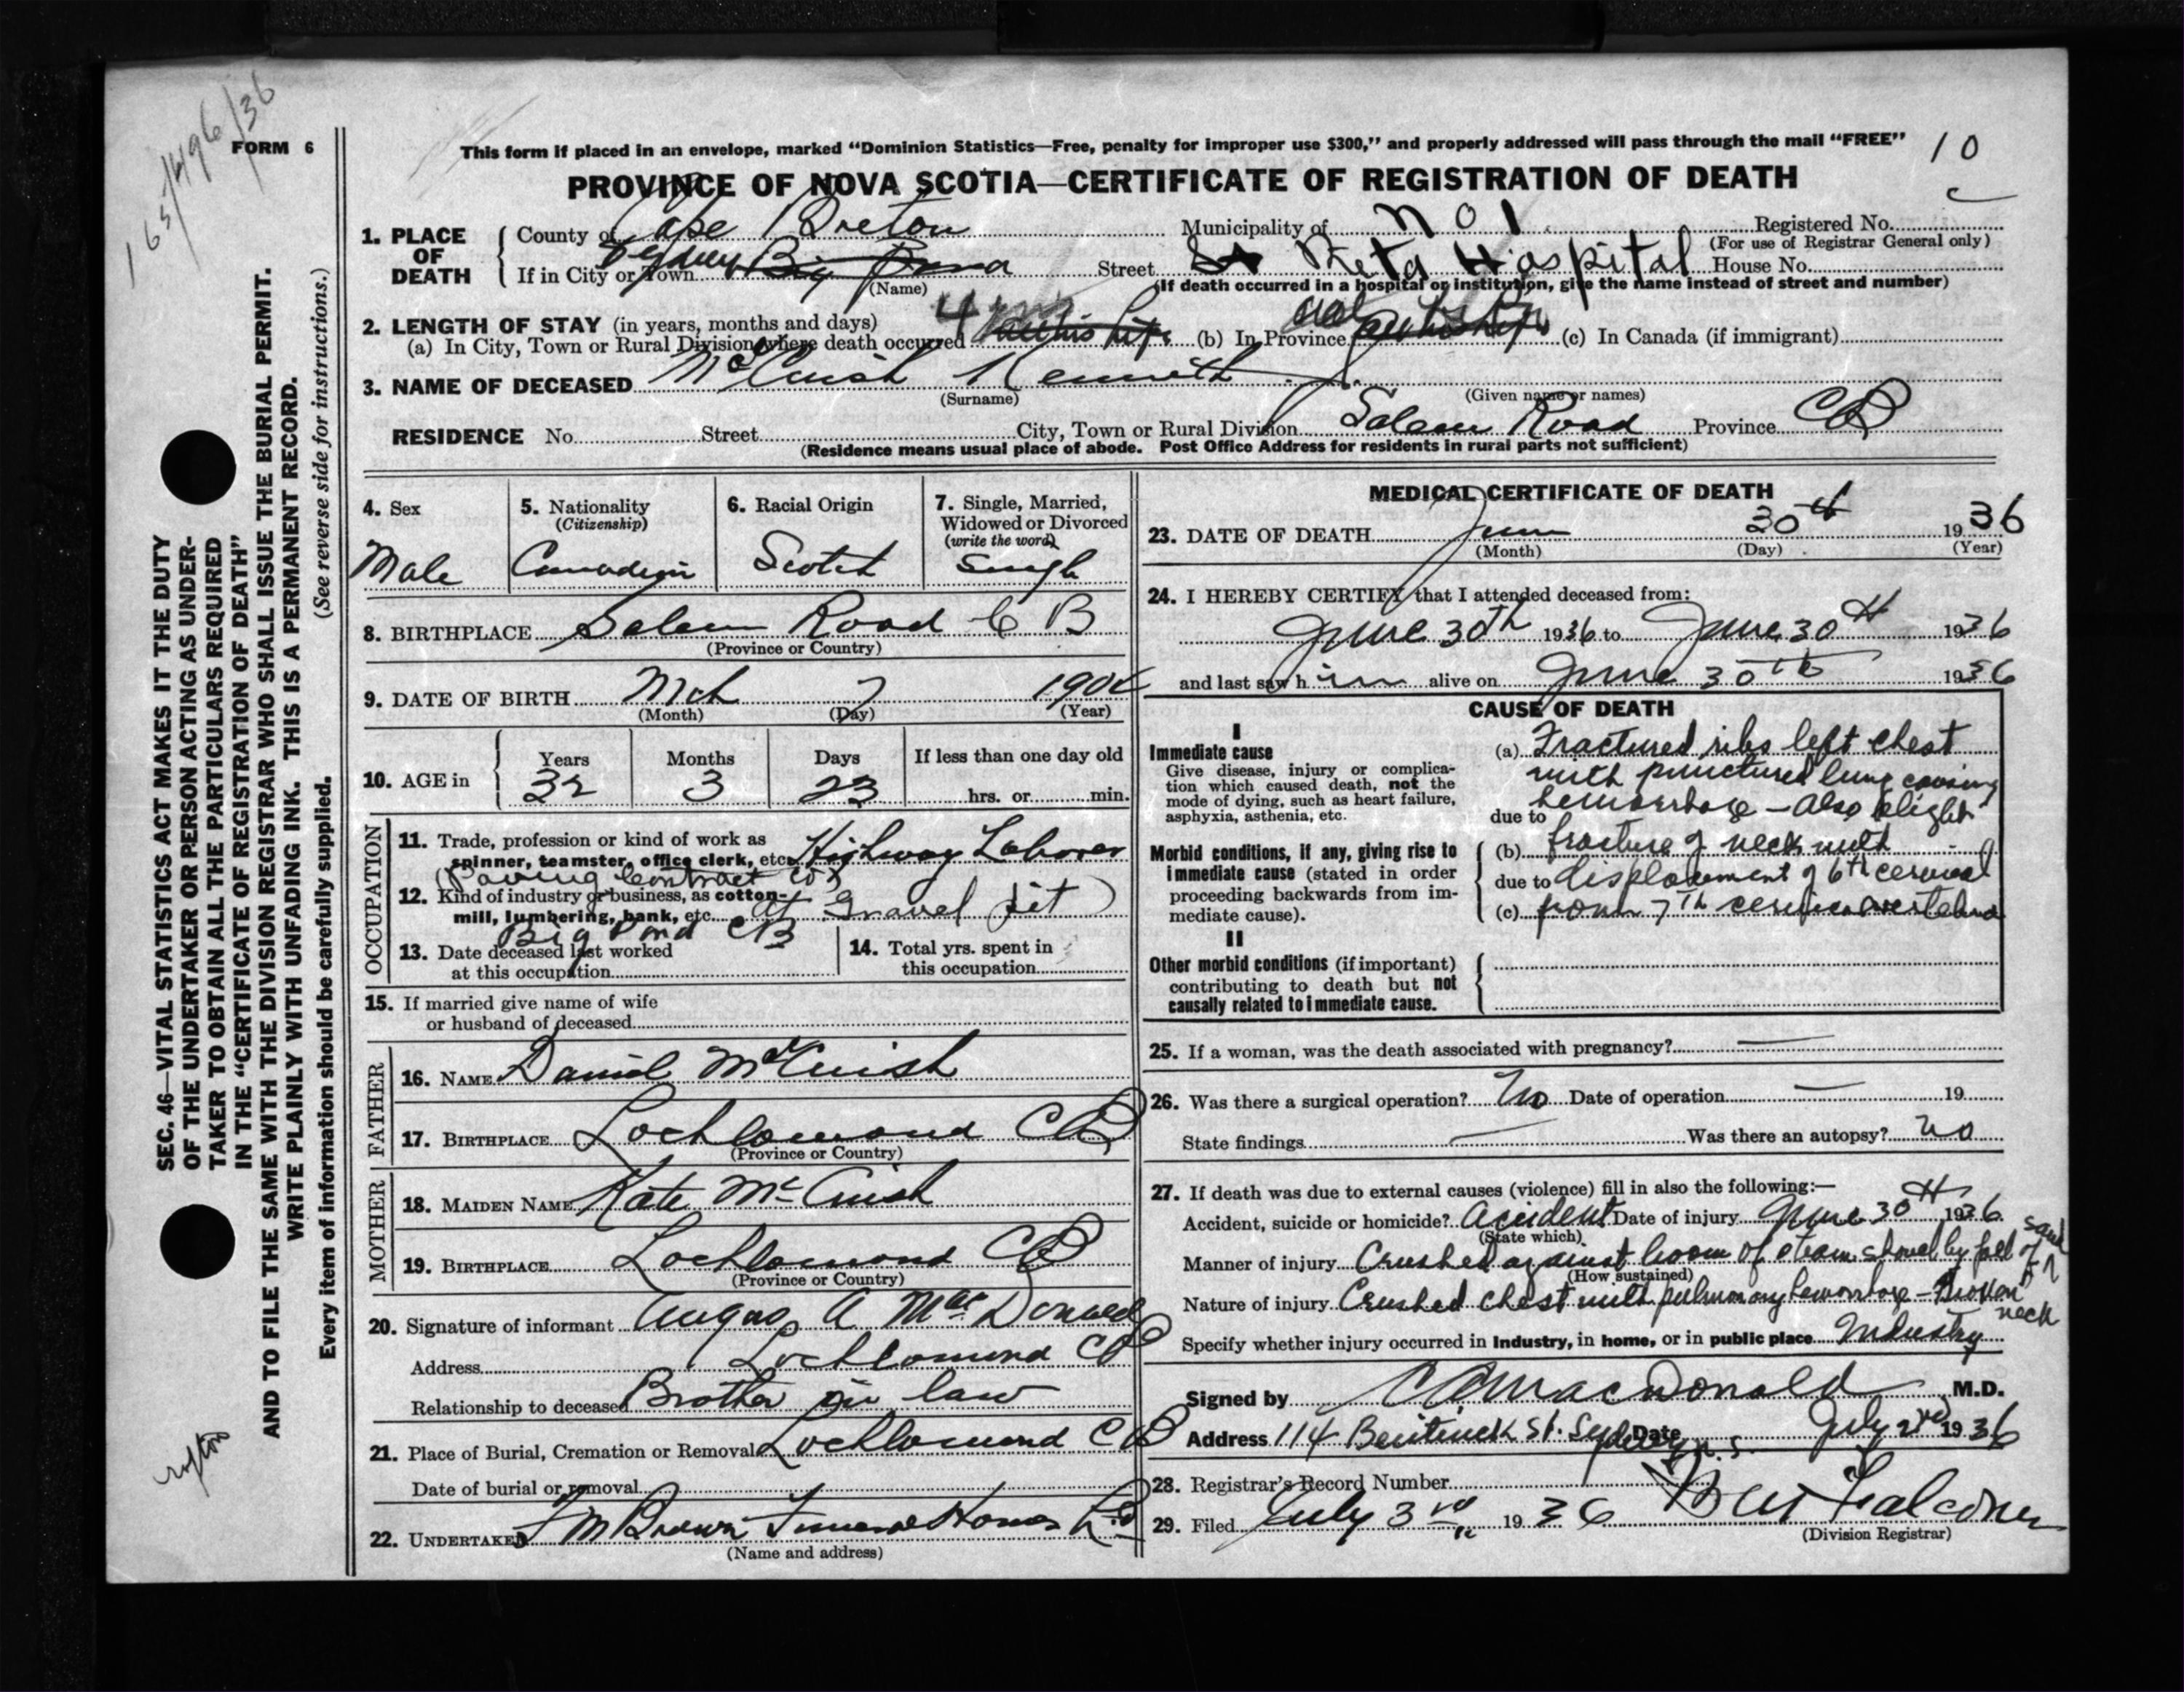 165/1496/36
FORM 6
This form if placed in an envelope, marked "Dominion Statistics—Free, penalty for improper use $300," and properly addressed will pass through the mail "FREE"
10
PROVINCE OF NOVA SCOTIA—CERTIFICATE OF REGISTRATION OF DEATH
1. PLACE OF DEATH
County of Cape Breton Municipality of No 1 Registered No.
(For use of Registrar General only)
If in City or Town Sydney Big Pond Street St Reta Hospital House No.
(Name) (If death occurred in a hospital or institution, give the name instead of street and number)
2. LENGTH OF STAY (in years, months and days)
(a) In City, Town or Rural Division where death occurred 4 (b) In Province (c) In Canada (if immigrant)
3. NAME OF DECEASED McCuish Kenneth J.
(Surname) (Given name or names)
RESIDENCE No. Street City, Town or Rural Division Salem Road Province CB
(Residence means usual place of abode. Post Office Address for residents in rural parts not sufficient)
4. Sex Male
5. Nationality (Citizenship) Canadian
6. Racial Origin Scotch
7. Single, Married, Widowed or Divorced (write the word) Single
8. BIRTHPLACE Salem Road C B
(Province or Country)
9. DATE OF BIRTH Mch 7 1904
(Month) (Day) (Year)
10. AGE in Years 32 Months 3 Days 23 If less than one day old
hrs. or min.
OCCUPATION
11. Trade, profession or kind of work as spinner, teamster, office clerk, etc. Highway Laborer
(Paving Contract Co)
12. Kind of industry or business, as cotton-mill, lumbering, bank, etc. At Gravel Pit)
Big Pond CB
13. Date deceased last worked at this occupation
14. Total yrs. spent in this occupation
15. If married give name of wife or husband of deceased
FATHER
16. NAME Daniel McCuish
17. BIRTHPLACE Lochlomond CB
(Province or Country)
MOTHER
18. MAIDEN NAME Kate McCuish
19. BIRTHPLACE Lochlomond CB
(Province or Country)
20. Signature of informant Angus A MacDonald
Address Lochlomond CB
Relationship to deceased Brother in law
21. Place of Burial, Cremation or Removal Lochlomond CB
Date of burial or removal
22. UNDERTAKER F M Brown Funeral Home Ltd
(Name and address)
MEDICAL CERTIFICATE OF DEATH
23. DATE OF DEATH June 30th 1936
(Month) (Day) (Year)
24. I HEREBY CERTIFY that I attended deceased from:
June 30th 1936 to June 30th 1936
and last saw him alive on June 30th 1936
CAUSE OF DEATH
I
Immediate cause
Give disease, injury or complication which caused death, not the mode of dying, such as heart failure, asphyxia, asthenia, etc.
(a) Fractured ribs left chest
with punctured lung causing
due to hemorrhage – also slight
Morbid conditions, if any, giving rise to immediate cause (stated in order proceeding backwards from immediate cause).
(b) fracture of neck with
due to displacement of 6th cervical
(c) from 7th cervical vertebra
II
Other morbid conditions (if important) contributing to death but not causally related to immediate cause.
25. If a woman, was the death associated with pregnancy? —
26. Was there a surgical operation? No Date of operation — 19
State findings — Was there an autopsy? no
27. If death was due to external causes (violence) fill in also the following:—
Accident, suicide or homicide? Accident Date of injury June 30th 1936
(State which)
Manner of injury Crushed against boom of steam shovel by fall of sand
(How sustained)
Nature of injury Crushed chest with pulmonary hemorrhage – Broken neck
Specify whether injury occurred in industry, in home, or in public place Industry
Signed by MacDonald M.D.
Address 114 Bentinck St. Sydney N.S. Date July 2nd 1936
28. Registrar's Record Number
29. Filed July 3rd 1936 Falconer
(Division Registrar)
SEC. 46—VITAL STATISTICS ACT MAKES IT THE DUTY
OF THE UNDERTAKER OR PERSON ACTING AS UNDER-
TAKER TO OBTAIN ALL THE PARTICULARS REQUIRED
IN THE "CERTIFICATE OF REGISTRATION OF DEATH"
AND TO FILE THE SAME WITH THE DIVISION REGISTRAR WHO SHALL ISSUE THE BURIAL PERMIT.
WRITE PLAINLY WITH UNFADING INK. THIS IS A PERMANENT RECORD.
Every item of information should be carefully supplied. (See reverse side for instructions.)